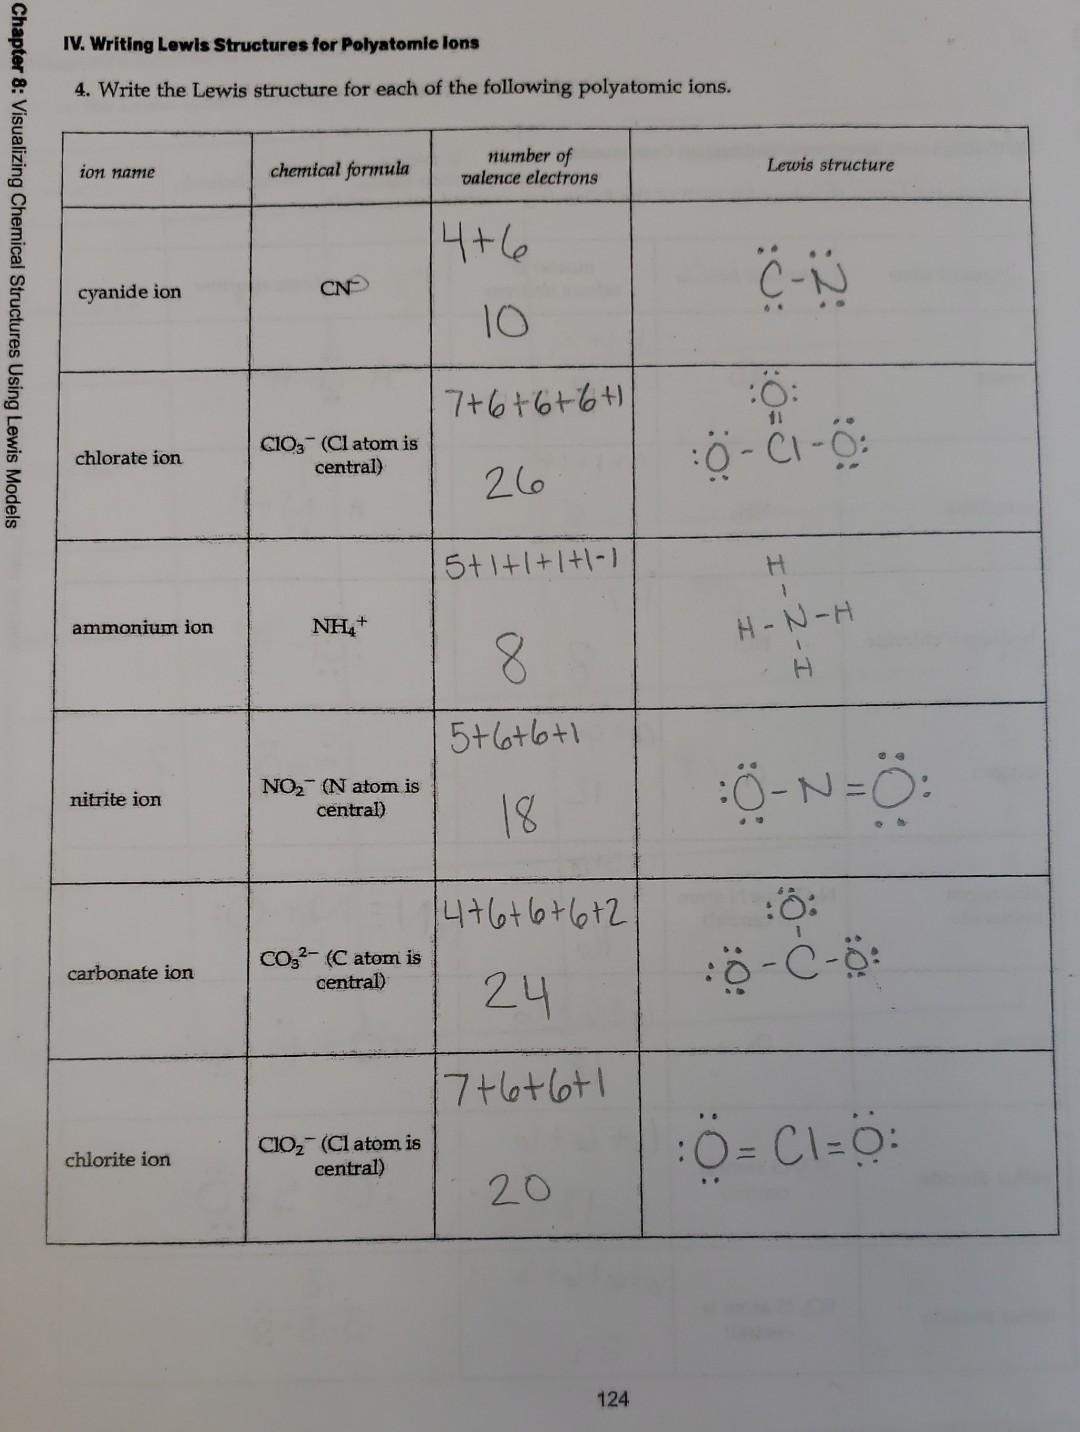 Chapter 8: Visualizing Chemical Structures Using Lewis Models
IV. Writing Lewis Structures for Polyatomic Ions
4. Write the Lewis structure for each of the following polyatomic ions.
ion name
chemical formula
number of
valence electrons
Lewis structure
cyanide ion
CN⁻
4+6
10
C-N
chlorate ion
ClO₃⁻ (Cl atom is
central)
7+6+6+6+1
26
O
=
O-Cl-O
ammonium ion
NH₄⁺
5+1+1+1+1-1
8
H
H-N-H
H
nitrite ion
NO₂⁻ (N atom is
central)
5+6+6+1
18
:O-N=O:
carbonate ion
CO₃²⁻ (C atom is
central)
4+6+6+6+2
24
:O:
:O-C-O:
chlorite ion
ClO₂⁻ (Cl atom is
central)
7+6+6+1
20
:O=Cl=O:
124